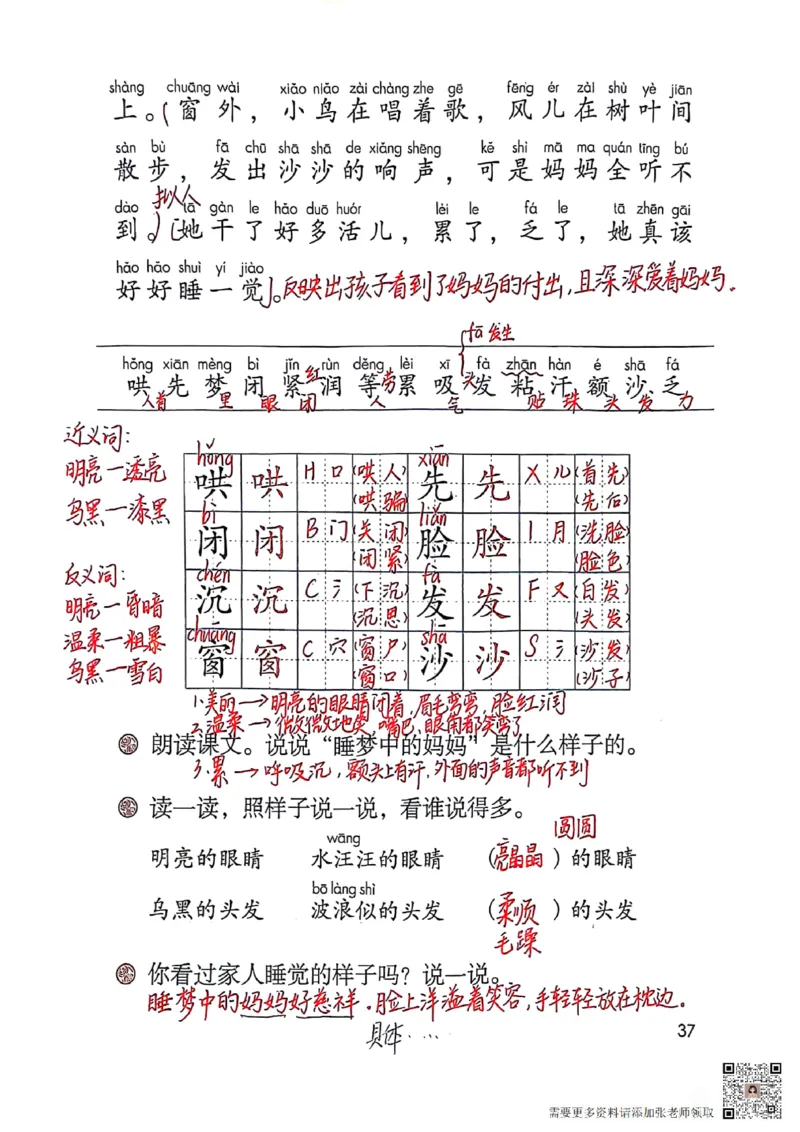 shàng chuāng wài xiǎo niǎo zài chàng zhe gē fēng ér zài shù yè jiān
上。(窗外，小鸟在唱着歌，风儿在树叶间
sàn bù fā chū shā shā de xiǎng shēng kě shì mā ma quán tīng bú
散步，发出沙沙的响声，可是妈妈全听不
拟人
dào tā gàn le hǎo duō huór lèi le fá le tā zhēn gāi
到。)(她干了好多活儿，累了，乏了，她真该
hǎo hǎo shuì yí jiào
好好睡一觉)。反映出孩子看到了妈妈的付出,且深深爱着妈妈.
fā 发生
hǒng xiān mèng bì jǐn rùn děng lèi xī fà zhān hàn é shā fá
哄先梦闭紧红润等劳累吸头发粘汗额沙乏
人首 里 眼 闭 人 气 贴 珠 头 发 力
近义词:
明亮—透亮
乌黑—漆黑
反义词:
明亮—昏暗
温柔—粗暴
乌黑—雪白
hǒng xiān
哄 哄 H 口 (哄人) (哄骗) 先 先 X 儿 (首先) (先后)
bì liǎn
闭 闭 B 门 (关闭) (闭紧) 脸 脸 l 月 (洗脸) (脸色)
chén fà
沉 沉 C 氵 (下沉) (沉思) 发 发 F 又 (白发) (头发)
chuāng shā
窗 窗 C 穴 (窗户) (窗口) 沙 沙 S 氵 (沙发) (沙子)
1.美丽→明亮的眼睛闭着,眉毛弯弯,脸红润
2.温柔→微微地笑 嘴巴,眼角都笑弯了
朗读课文。说说“睡梦中的妈妈”是什么样子的。
3.累→呼吸沉,额头上有汗,外面的声音都听不到
读一读，照样子说一说，看谁说得多。
圆圆
wāng
明亮的眼睛 水汪汪的眼睛 (亮晶晶)的眼睛
bō làng shì
乌黑的头发 波浪似的头发 (柔顺)的头发
毛躁
你看过家人睡觉的样子吗？说一说。
睡梦中的妈妈好慈祥.脸上洋溢着笑容,手轻轻放在枕边.
具体....
37
需要更多资料请添加张老师领取